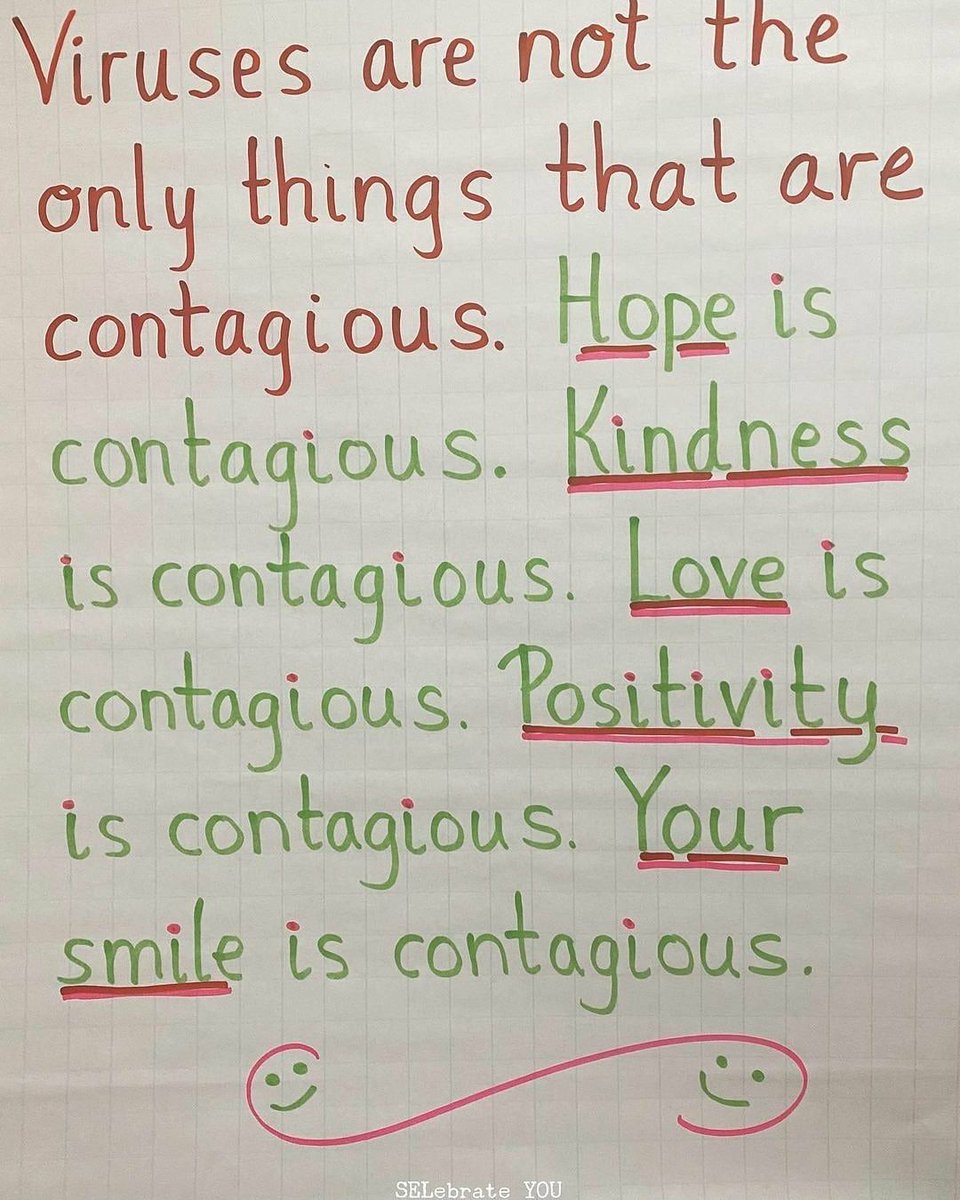 Viruses are not the
only things that are
contagious. Hope is
contagious. Kindness
is contagious. Love is
contagious. Positivity
is contagious. Your
smile is contagious.
SELebrate YOU